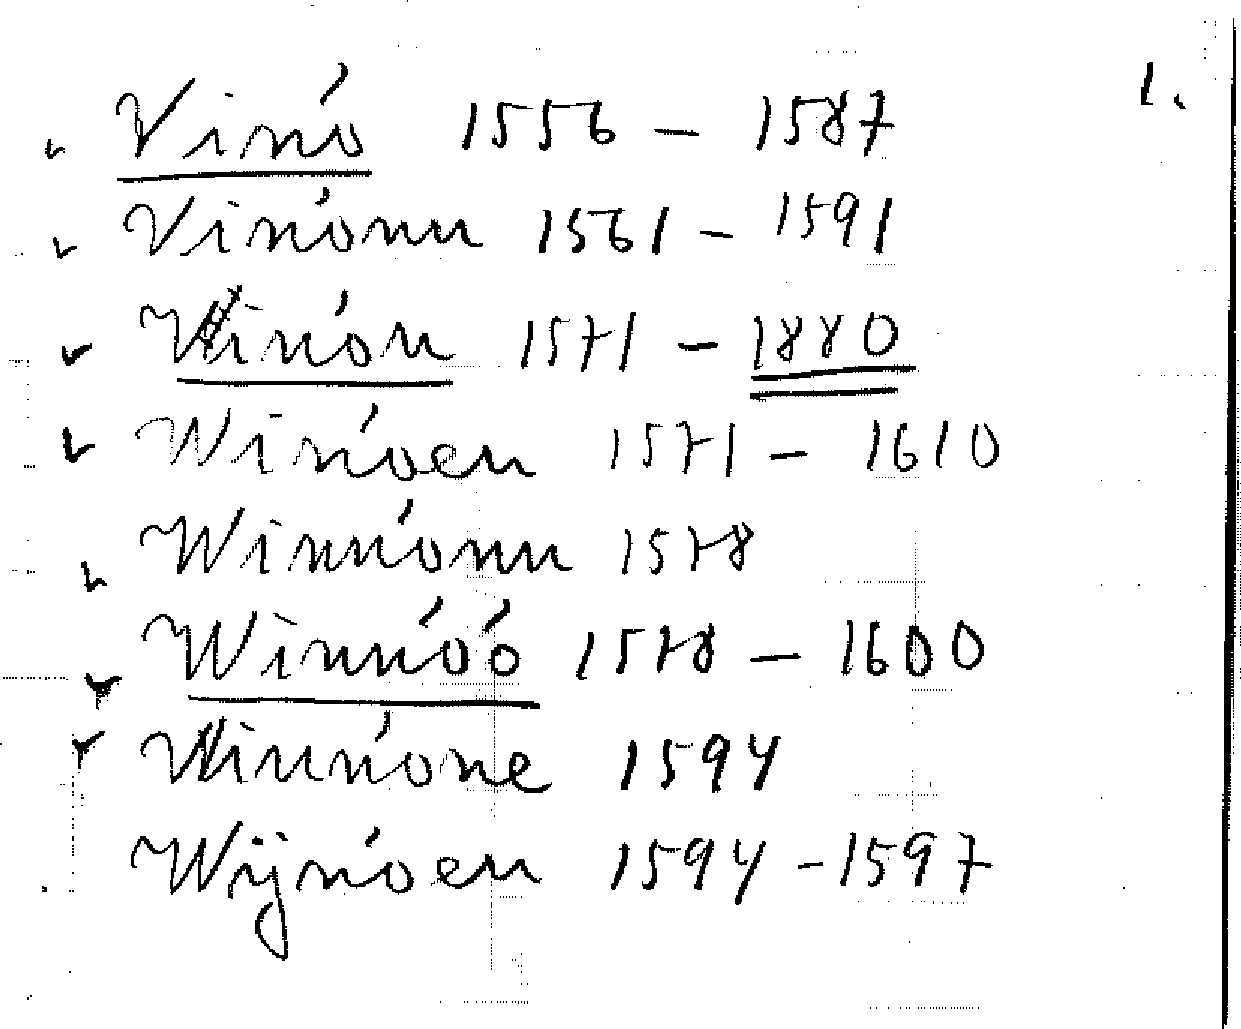 1.
Vinó 1556 – 1587
Vinónn 1561 – 1591
Winón 1571 – 1880
Winóen 1571 – 1610
Winnónn 1578
Winnóó 1578 – 1600
Winnóne 1594
Wijnóen 1594 – 1597